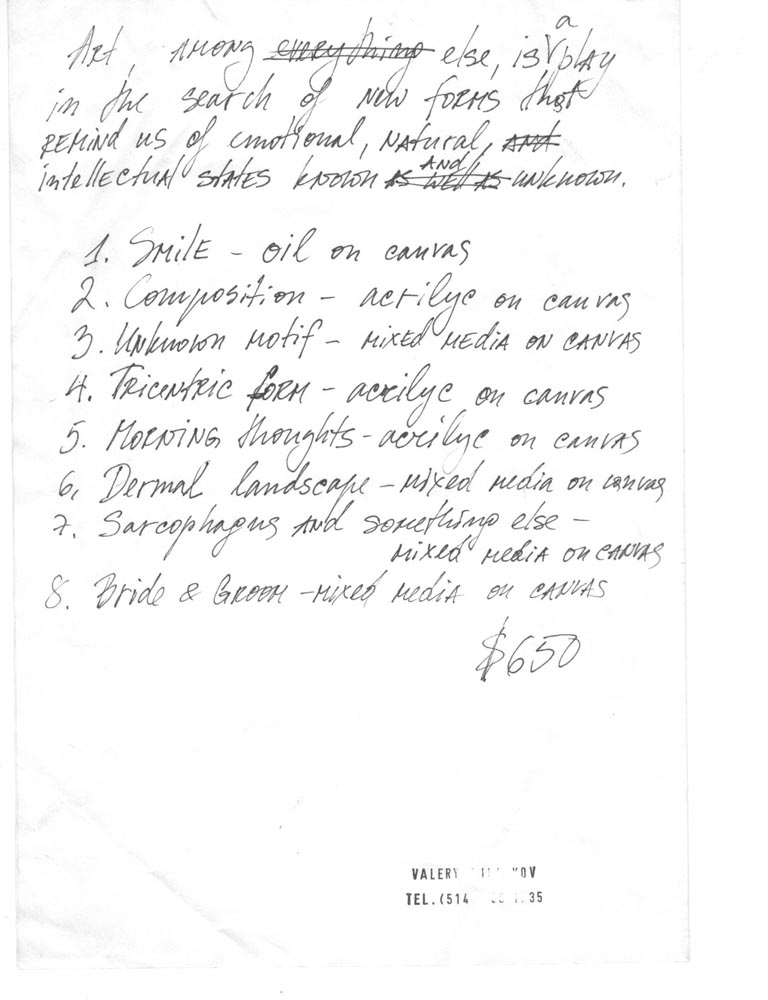 Art, AMONG everything else, is a play
in the search of NEW forms that
REMIND us of emotional, NAtural, AND
intellectual STATES known AS WELL AS AND unknown.
1. SmilE - oil on canvas
2. Composition - acrilyc on canvas
3. Unknown motif - MIXED MEDIA ON CANVAS
4. TRICENTRIC foRM - acrilyc on canvas
5. MORNING thoughts - acrilyc on canvas
6. Dermal landscape - mixed media on canvas
7. Sarcophagus AND something else -
mixed media on CANVAS
8. Bride & GROOM - mixed media on CANVAS
$650
VALERY
TEL. (514 35